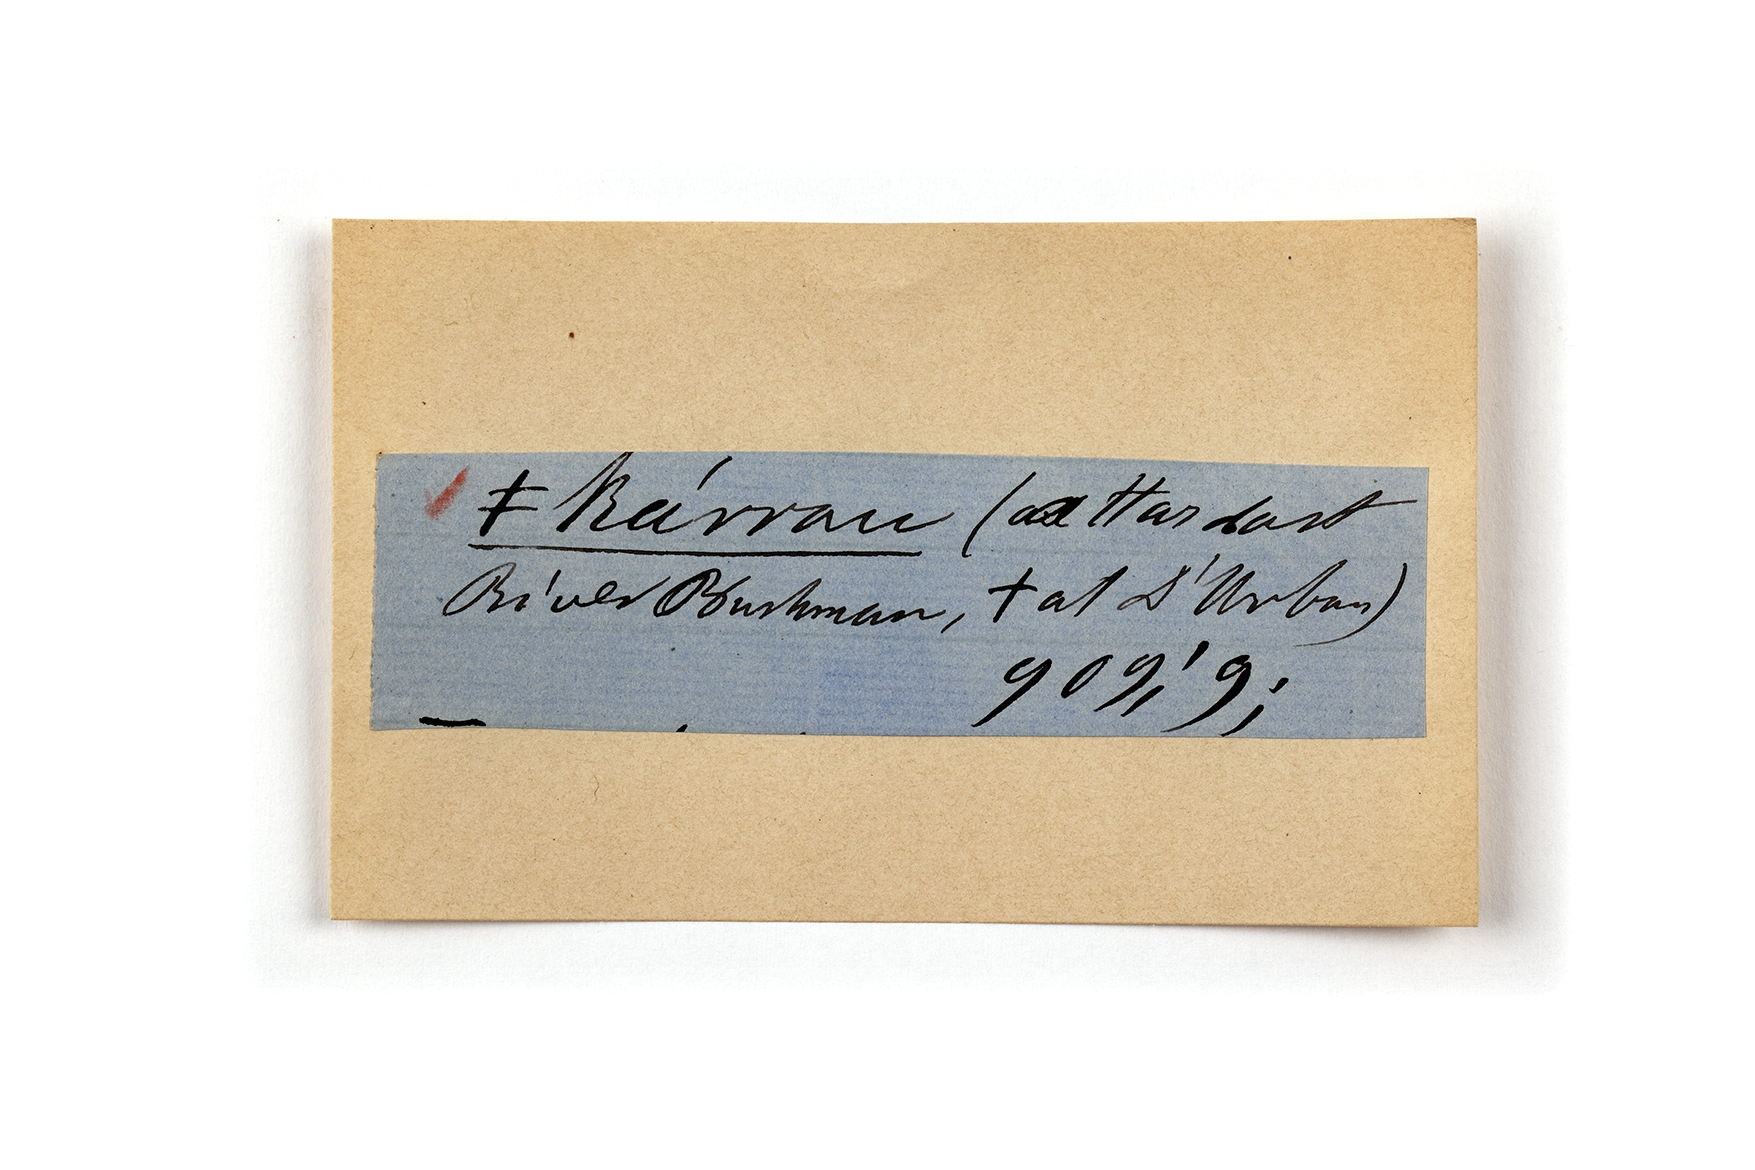 ǂkárrau (a Hardast
River Bushman, + at D'Urban)
909,'9;